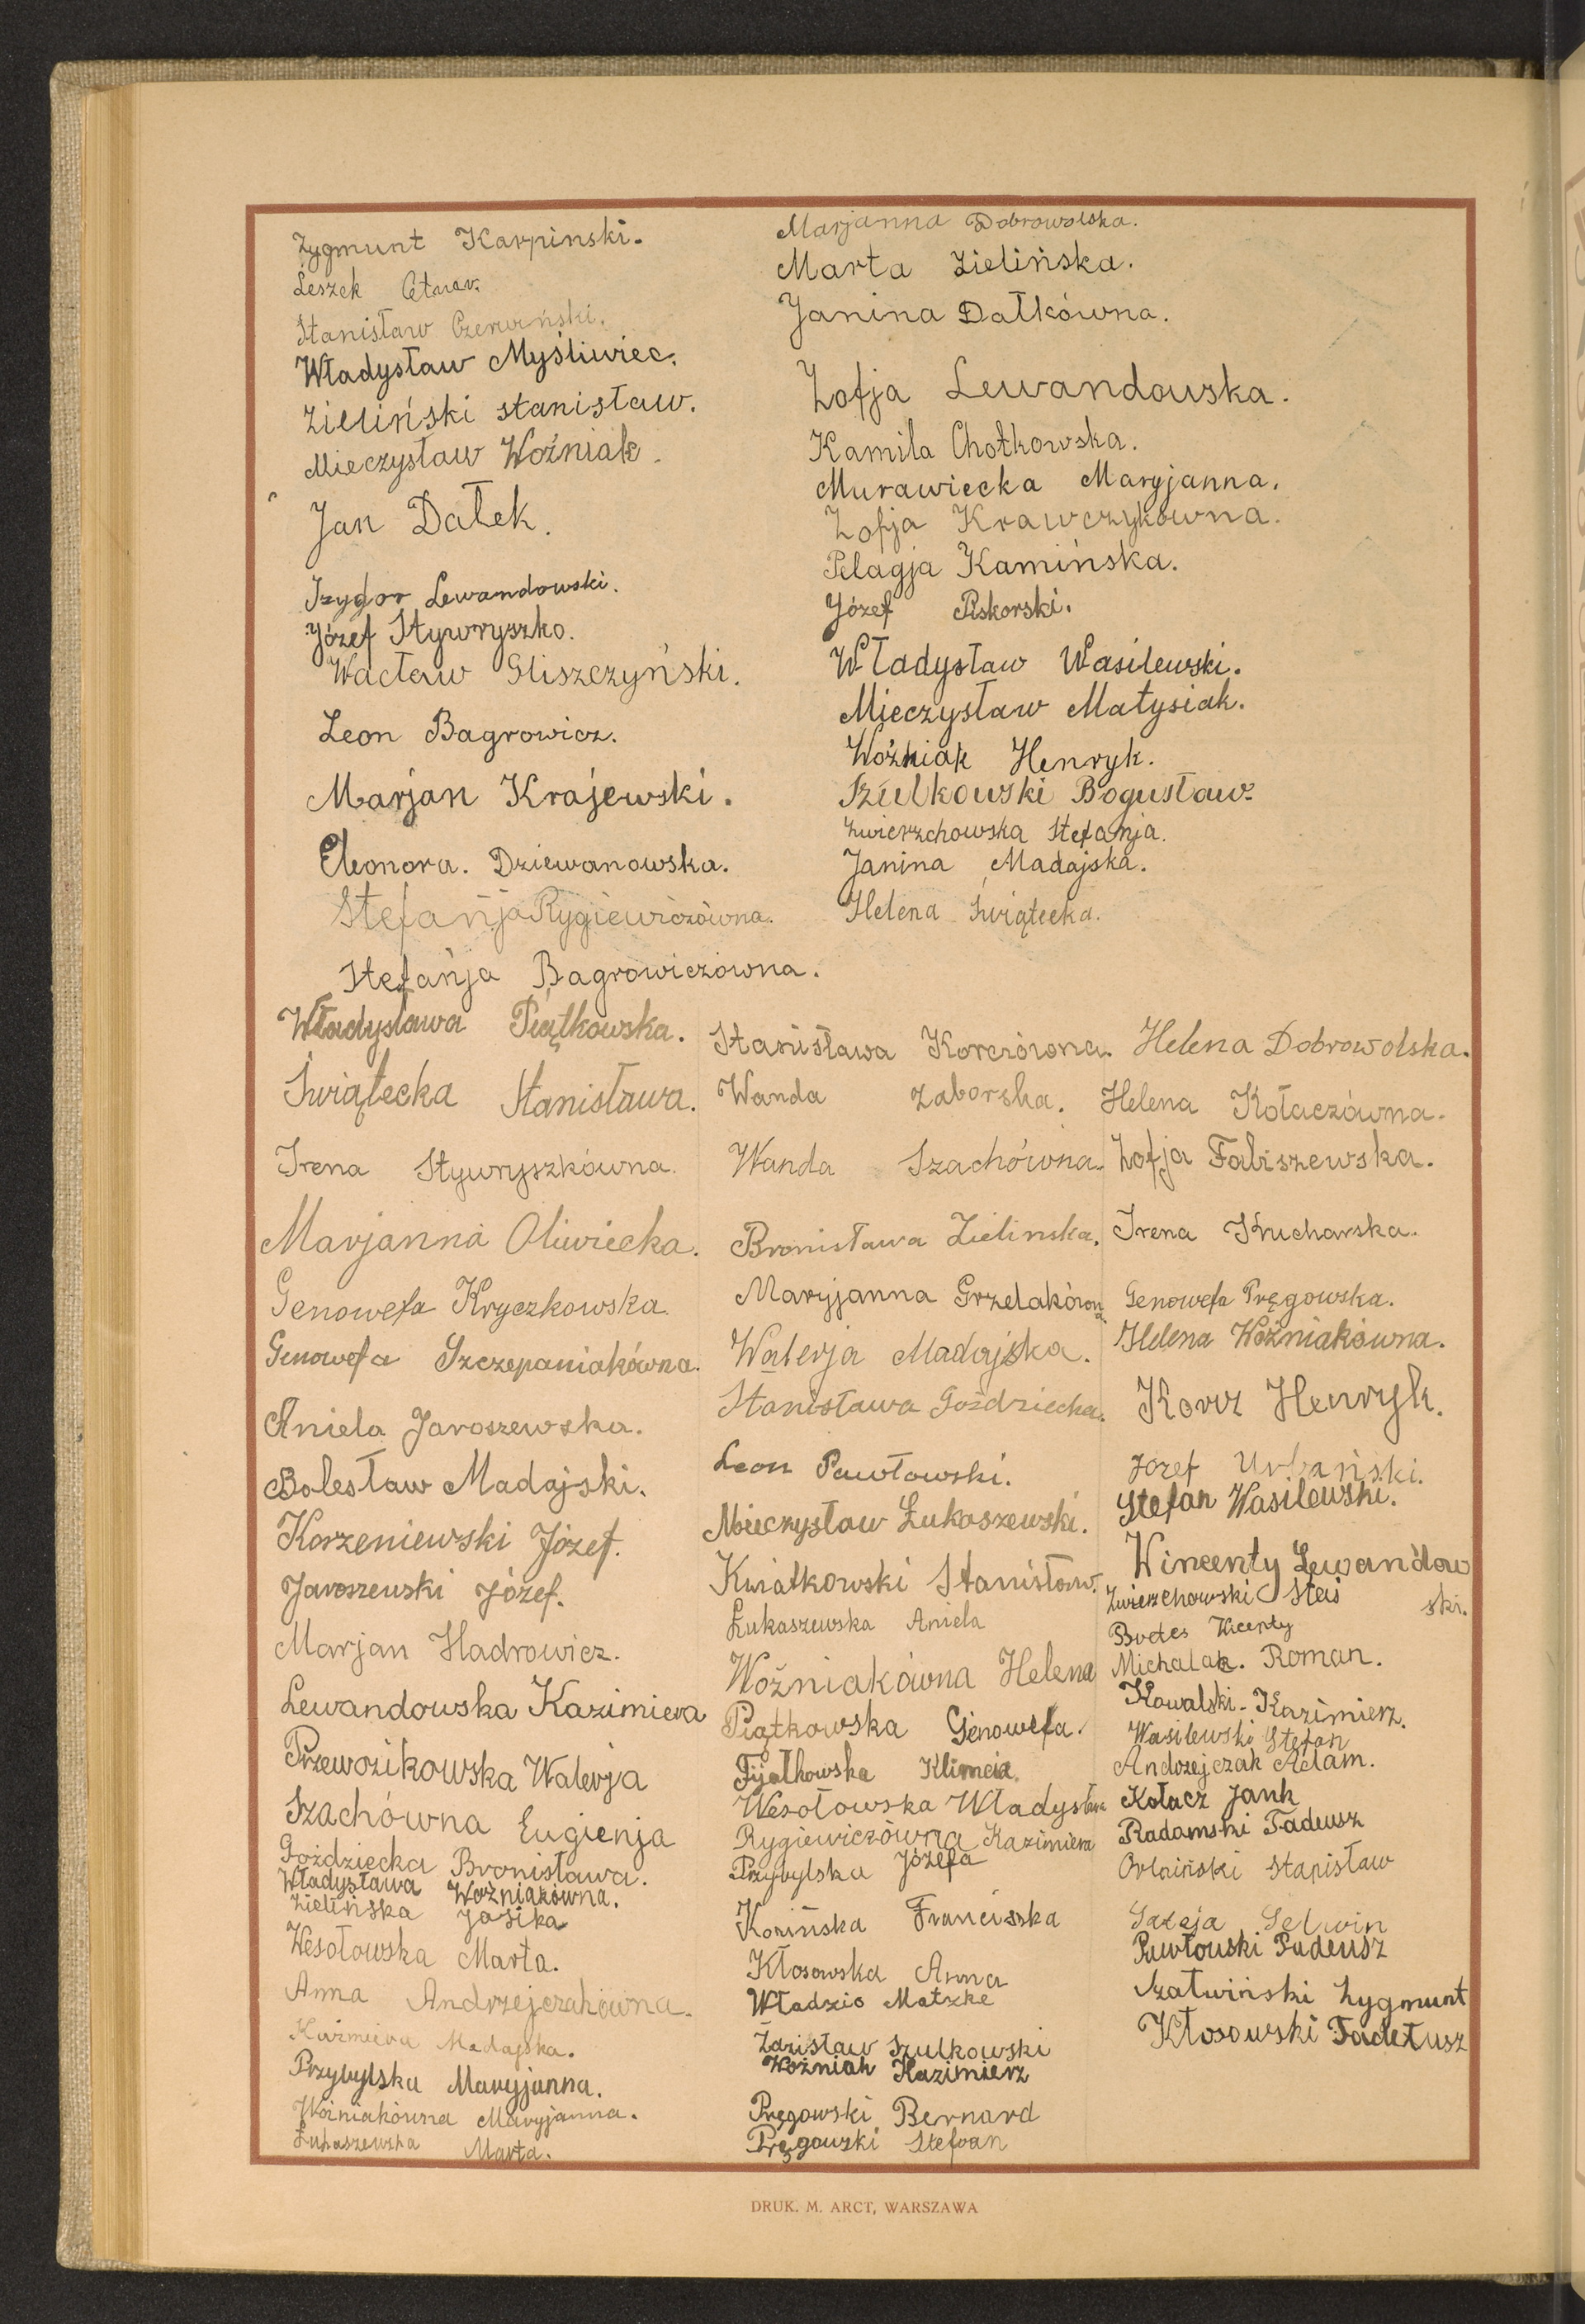 Zygmunt Karpinski.
Leszek
Stanisław Czerwiński.
Władysław Myśliwiec.
Zieliński stanisław.
Mieczysław Woźniak.
Jan Dałek.
Izygor Lewandowski.
Józef Stywryszko.
Wacław Gliszczyński.
Leon Bagrowicz.
Marjan Krajewski.
Eleonora. Dziewanowska.
Stefańja Rygiewiczówna.
Stefańja Bagrowiczówna.
Marjanna Dobrowolska.
Marta Zielińska.
Janina Dałkówna.
Zofja Lewandowska.
Kamila Chotkowska.
Murawiecka Maryjanna.
Zofja Krawczykówna.
Pelagja Kamińska.
Józef Piskorski.
Władysław Wasilewski.
Mieczysław Matysiak.
Woźniak Henryk.
Szulkowski Bogusław.
Zwierzchowska Stefanja.
Janina Madajska.
Helena Świątecka.
Władysława Piątkowska.
Świątecka Stanisława.
Irena Stywryszkówna.
Marjanna Oliwiecka.
Genowefa Kryczkowska.
Genowefa Szczepaniakówna.
Aniela Jaroszewska.
Bolesław Madajski.
Korzeniewski Józef.
Jaroszewski Józef.
Marjan Hadrowicz.
Lewandowska Kazimiera
Przewozikowska Walerja
Szachówna Eugienja
Goździecka Bronisława.
Władysława Woźniakówna.
Zielińska Jasika
Wesołowska Marta.
Anna Andrzejczakówna.
Kaźmiera Madajska.
Przybylska Maryjanna.
Woźniakówna Maryjanna.
Łukaszewska Marta.
Stanisława Korczówna.
Wanda Zaborska.
Wanda Szachówna.
Bronisława Zielinska.
Maryjanna Grzelakówna
Walerja Madajska.
Stanisława Goździecka.
Leon Pawłowski.
Mieczysław Łukaszewski.
Kwiatkowski Stanisław.
Łukaszewska Aniela
Woźniakówna Helena
Piątkowska Genowefa.
Fijałkowska
Wesołowska Władysława
Rygiewiczówna Kazimiera
Przybylska Józefa
Kozińska Franciszka
Kłosowska Anna
Władzio Matzke
Zdzisław Szulkowski
Woźniak Kazimierz
Pręgowski Bernard
Pręgowski Stefan
Helena Dobrowolska.
Helena Kołaczówna.
Zofja Fabiszewska.
Irena Kucharska.
Genowefa Pręgowska.
Helena Woźniakówna.
Korcz Henryk.
Józef Urbański.
Stefan Wasilewski.
Wincenty Lewandow
ski.
Zwierzchowski Staś
Michalak. Roman.
Kowalski-Kazimierz.
Wasilewski Stefan
Andrzejczak Adam.
Kołacz Jank
Radamski Tadeusz
Orliński Stanisław
Pawłowski Tadeusz
Szatwiński Zygmunt
Kłosowski Tadeusz
DRUK. M. ARCT, WARSZAWA